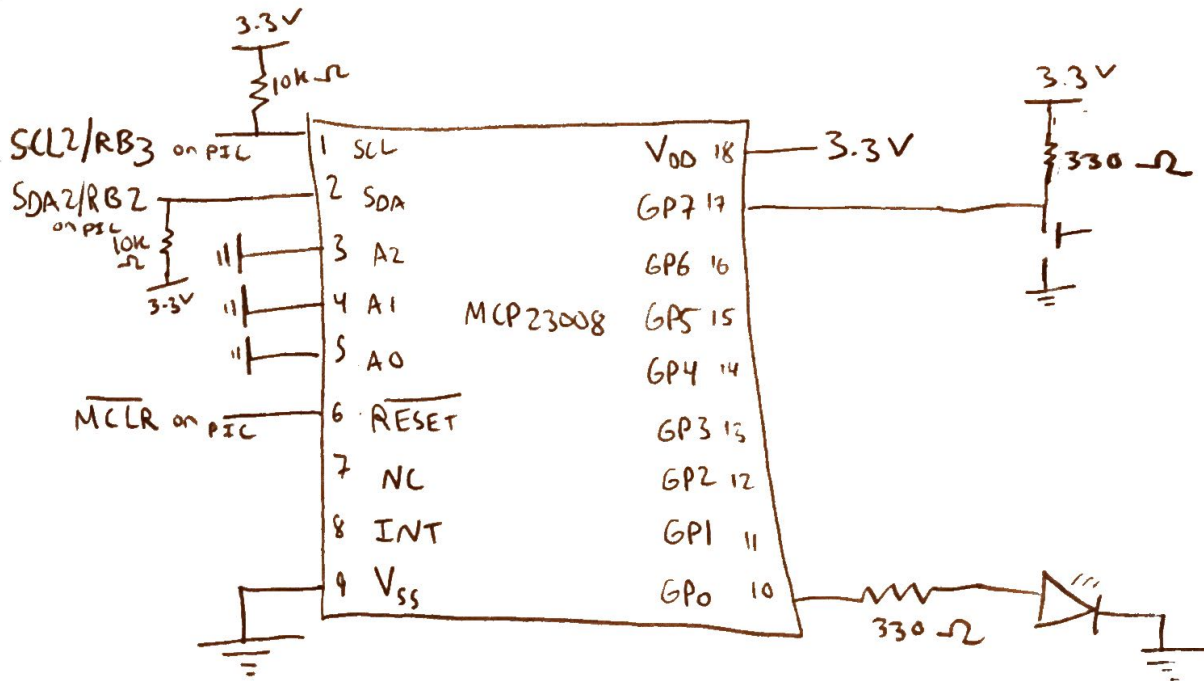 3.3V
10K Ω
SCL2/RB3 on PIC
SDA2/RB2
on PIC
10K
Ω
3.3V
MCLR on PIC
1 SCL
2 SDA
3 A2
4 A1
5 A0
6 RESET
7 NC
8 INT
9 VSS
MCP23008
VDD 18
GP7 17
GP6 16
GP5 15
GP4 14
GP3 13
GP2 12
GP1 11
GP0 10
3.3V
3.3V
330 Ω
330 Ω